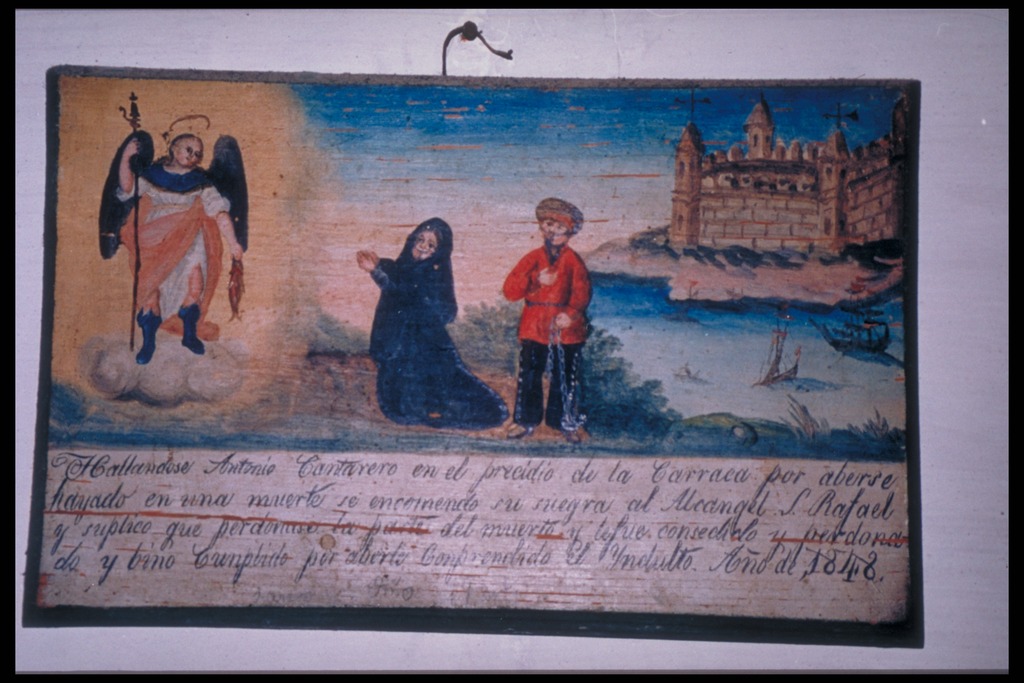 Hallandose Antonio Cantarero en el precidio de la Carraca por aberse
hayado en una muerte se encomendo su suegra al Alcangel S. Rafael
y suplico que perdonase la parte del muerto y lefue consedido y perdona
do y bino Cunplido por aberlo Conprendido El Yndulto. Año de, 1848.